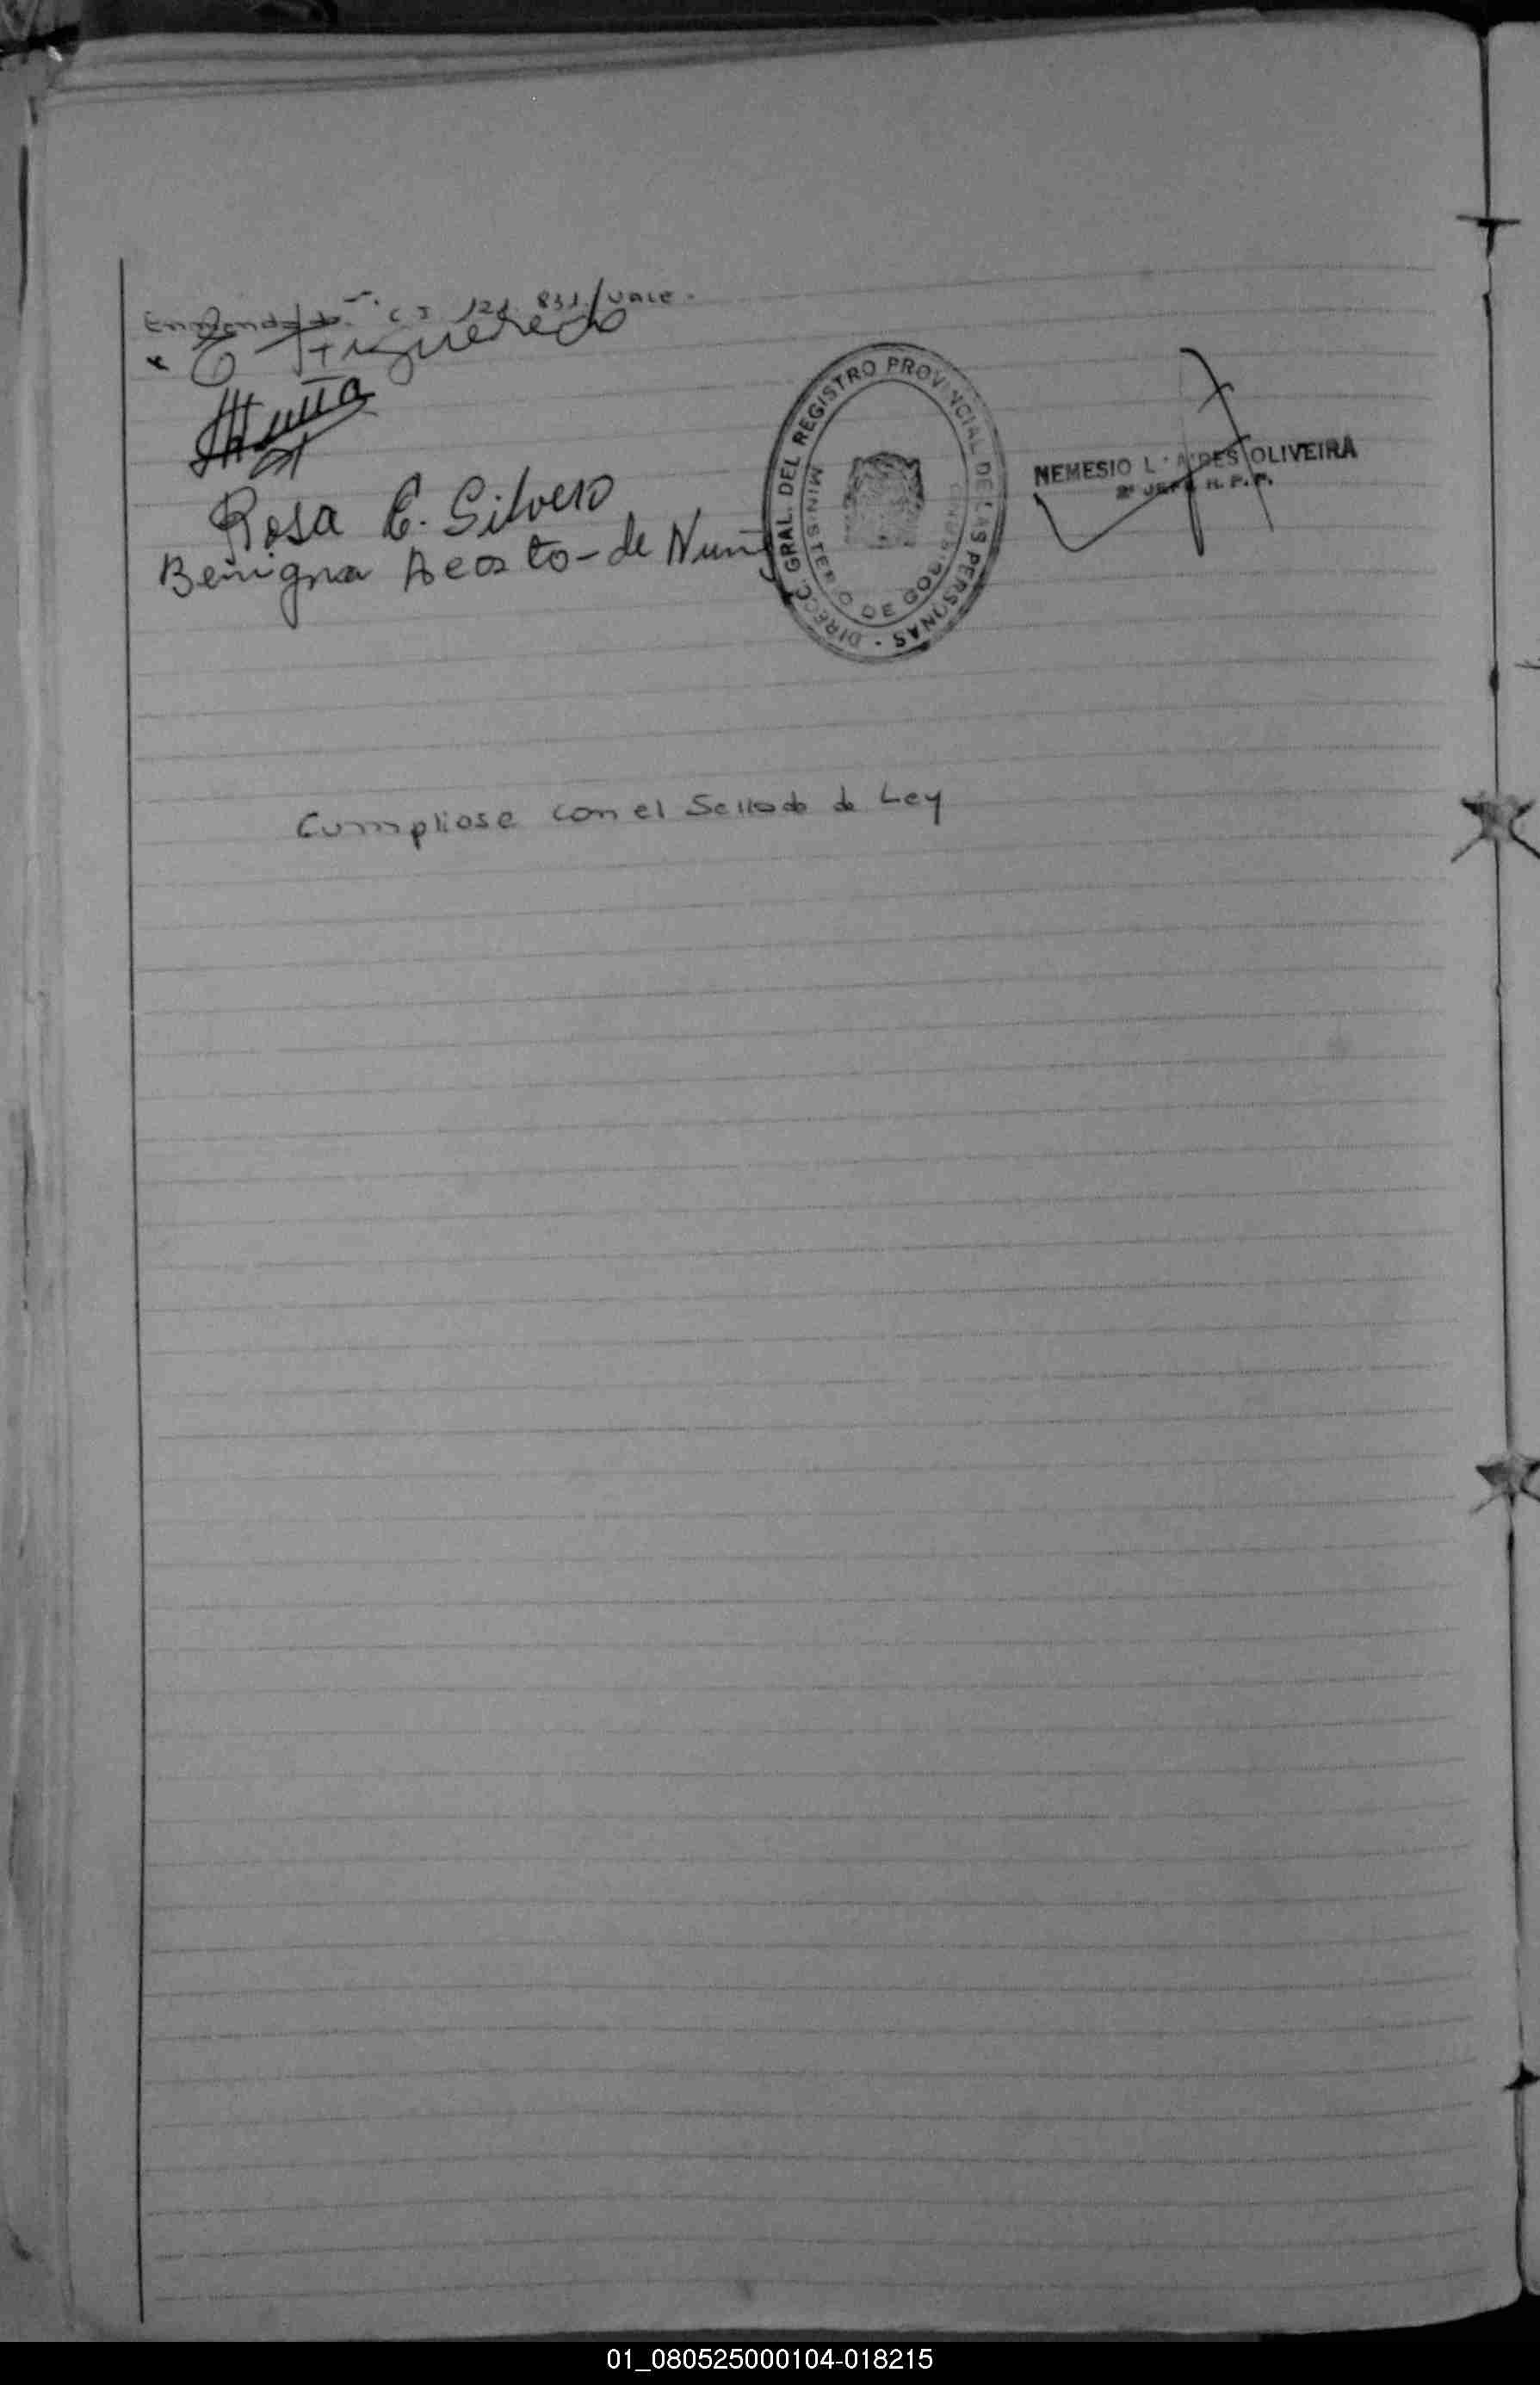 Enmendado: "C I 121.831/vale.
E Figueredo
Rosa E. Silvero
Benigna Acosta-de Nuñ
DIRECC. GRAL. DEL REGISTRO PROVINCIAL DE LAS PERSONAS -
MINISTERIO DE GOBIERNO
NEMESIO L. AIRES OLIVEIRA
2º JEFE R. P. P.
Cumpliose con el Sellado de Ley
01_080525000104-018215